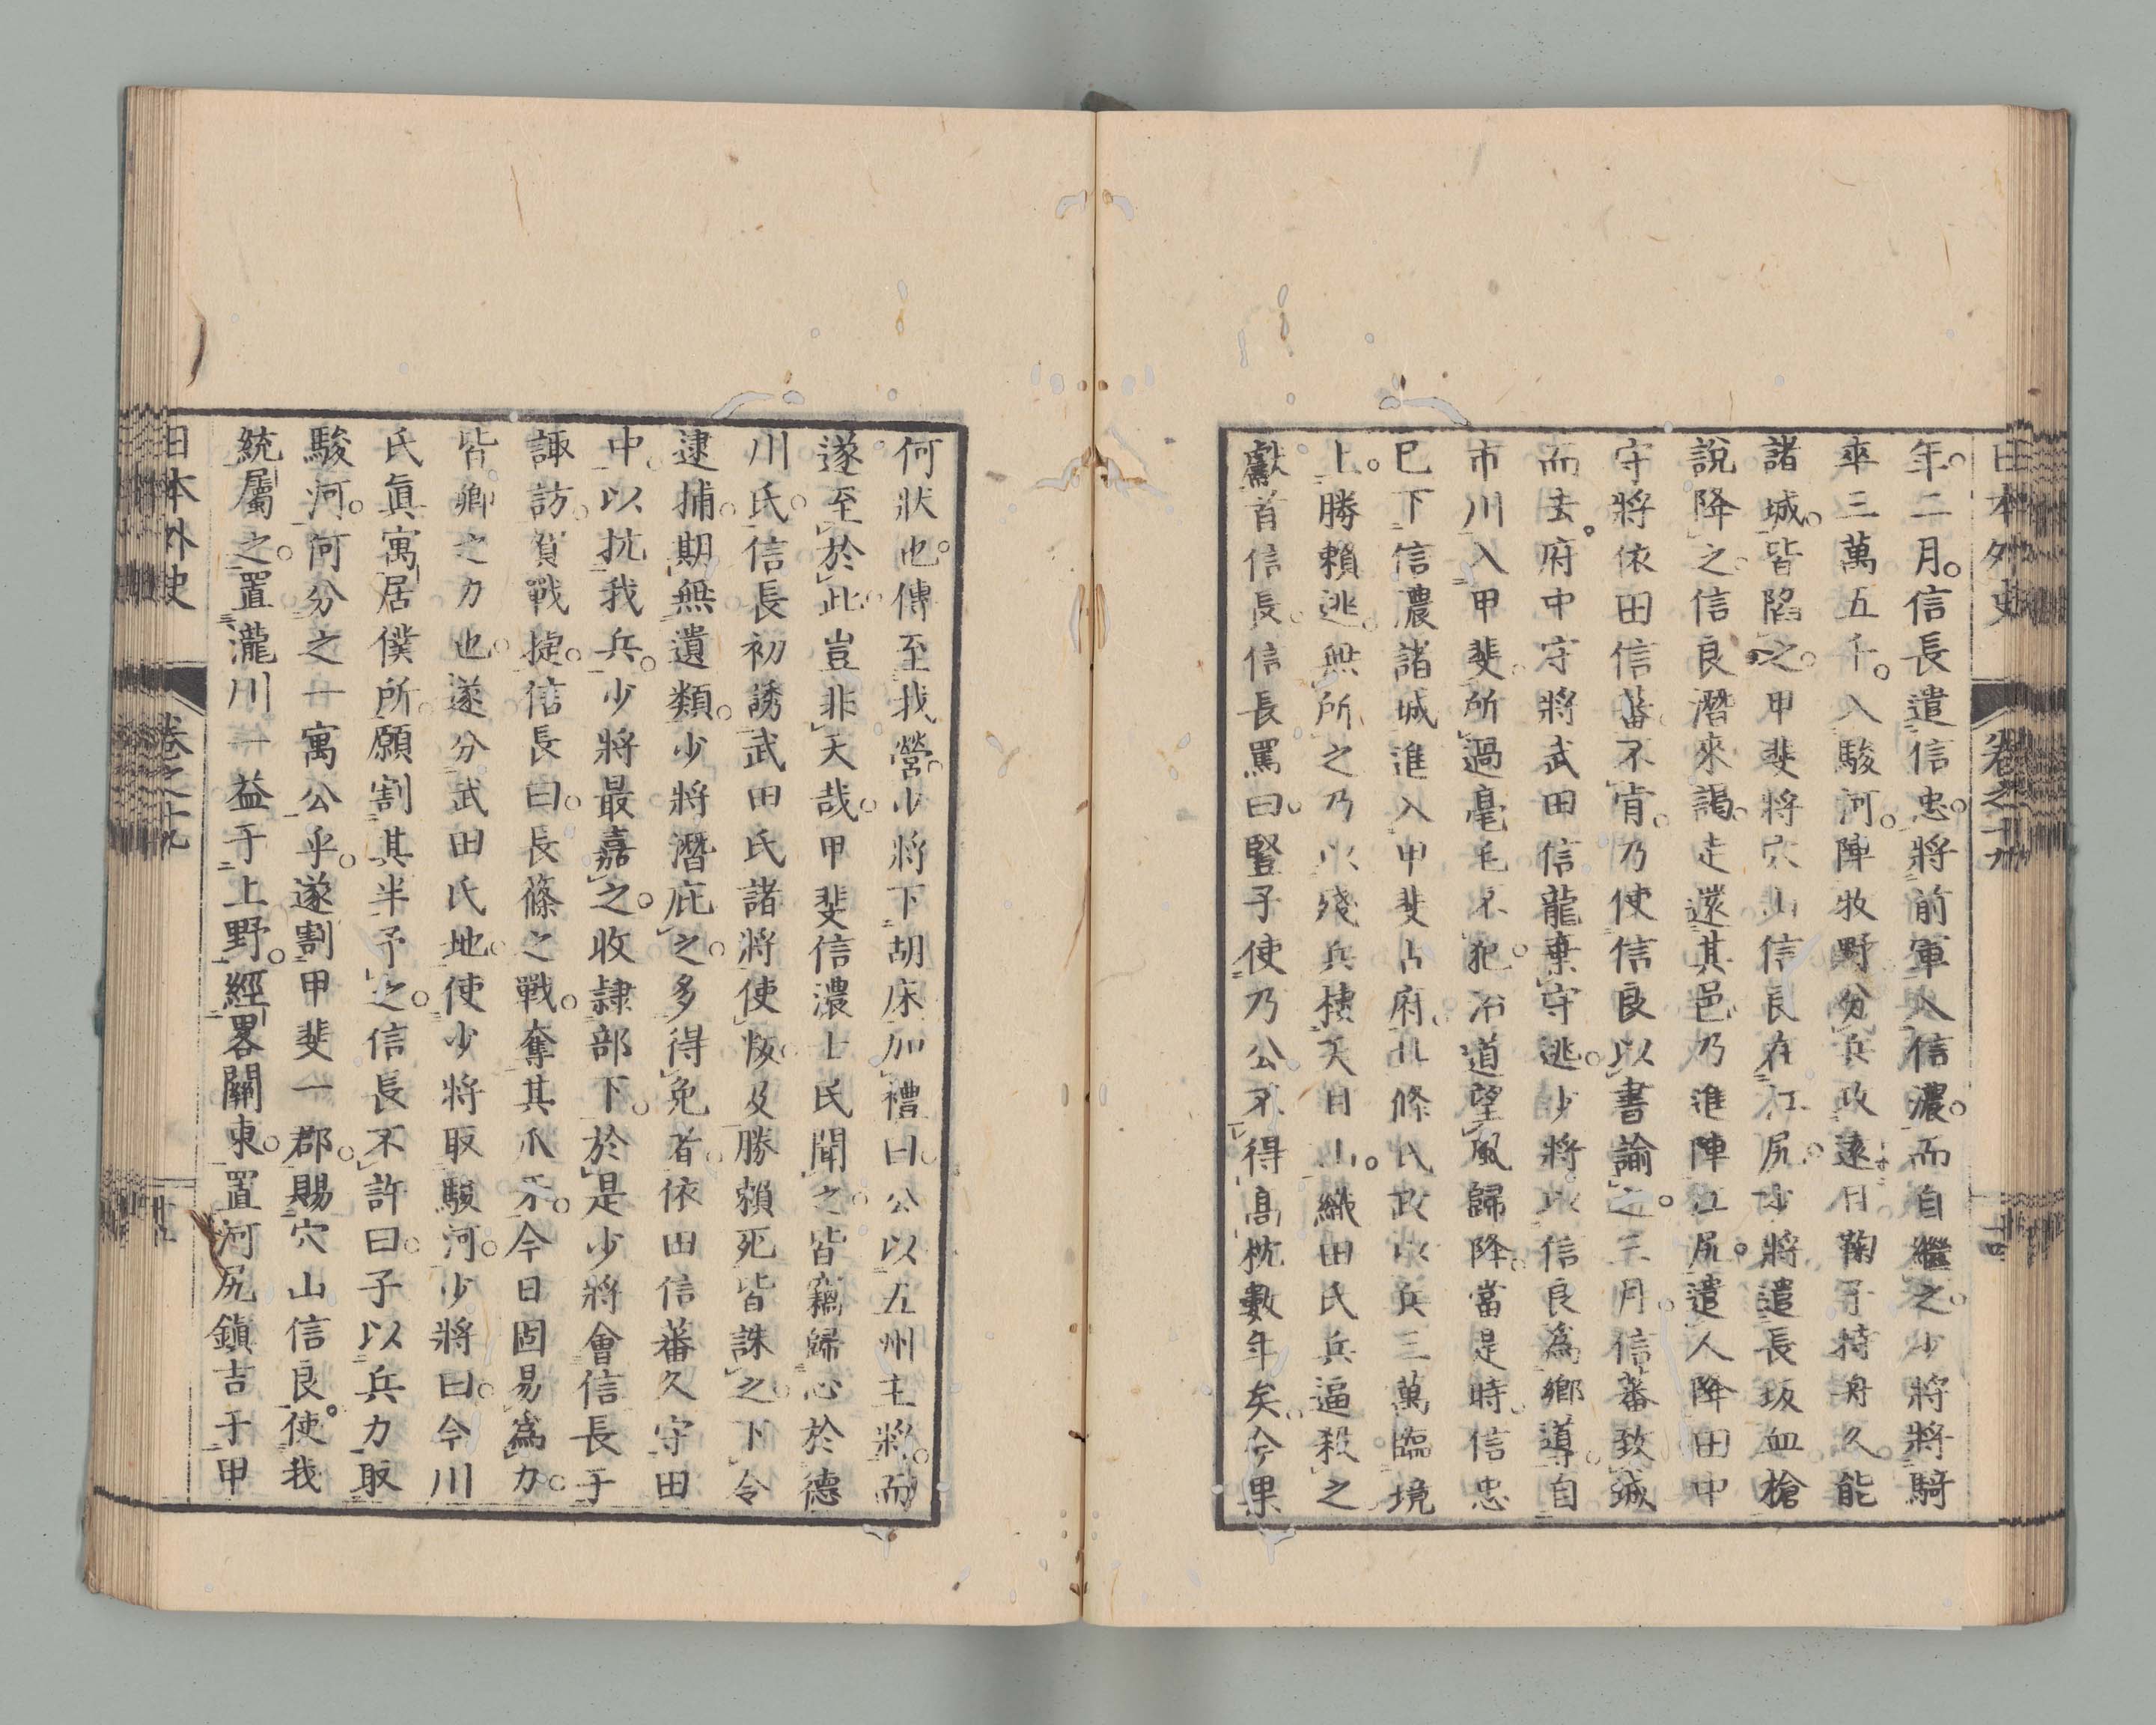 日本外史 卷之十九 二十四
年二月。信長遣信忠。將前軍入信濃。而自繼之。少將將騎
卒三萬五千。入駿河。陣牧野。分兵攻遠目鞠子持舟久能
諸城。皆陷之。甲斐將穴山信良在江尻。少將遣長坂血槍
說降之。信良潛來謁。走還其邑。乃進陣江尻。遣人降田中
守將依田信蕃。不肯。乃使信良以書諭之。三月。信蕃致城
而去。府中守將武田信龍棄守逃。少將以信良為鄉導。自
市川入甲斐。所過毫毛不犯。沿道望風歸降。當是時。信忠
已下信濃諸城。進入甲斐古府。北條氏政以兵三萬臨境
上。勝賴逃。無所之。乃以殘兵棲天目山。織田氏兵逼殺之
獻首信長。信長罵曰。豎子使乃公不得高枕數年矣。今果
何狀也。傳至我營。少將下胡床加禮曰。公以五州主將。而
遂至於此。豈非天哉。甲斐信濃士民聞之。皆竊歸心於德
川氏。信長初誘武田氏諸將使叛。及勝賴死。皆誅之。下令
逮捕。期無遺類。少將潛庇之。多得免者。依田信蕃久守田
中。以抗我兵。少將最嘉之。收隷部下。於是少將會信長于
諏訪。賀戰捷。信長曰。長篠之戰。奪其爪牙。今日固易為力。
皆卿之力也。遂分武田氏地。使少將取駿河。少將曰。今川
氏眞寓居僕所。願割其半予之。信長不許曰。子以兵力取
駿河。何分之一寓公乎。遂割甲斐一郡。賜穴山信良。使我
統屬之。置瀧川一益于上野。經畧關東。置河尻鎮吉于甲
日本外史 卷之十九